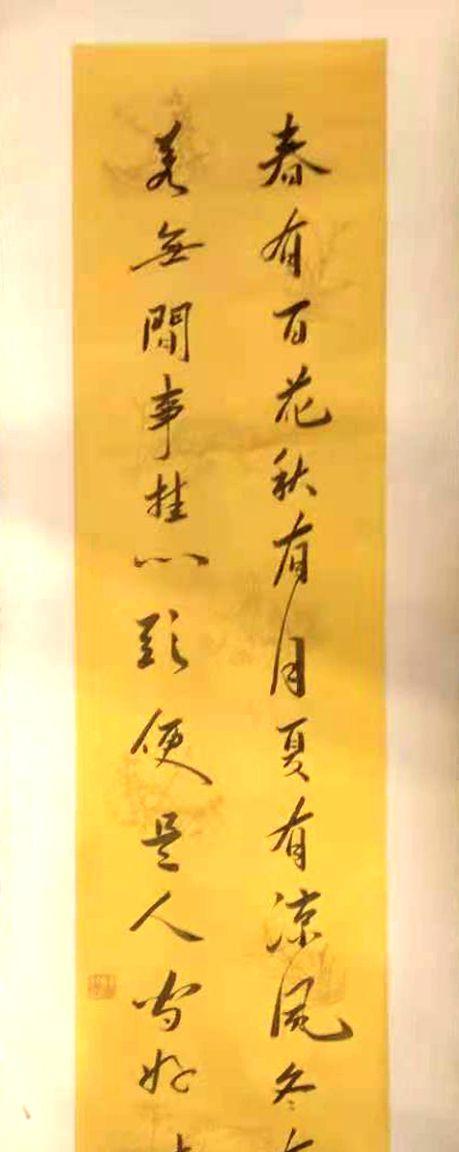 春有百花秋有月夏有涼風冬有
若無閒事挂心頭便是人間好